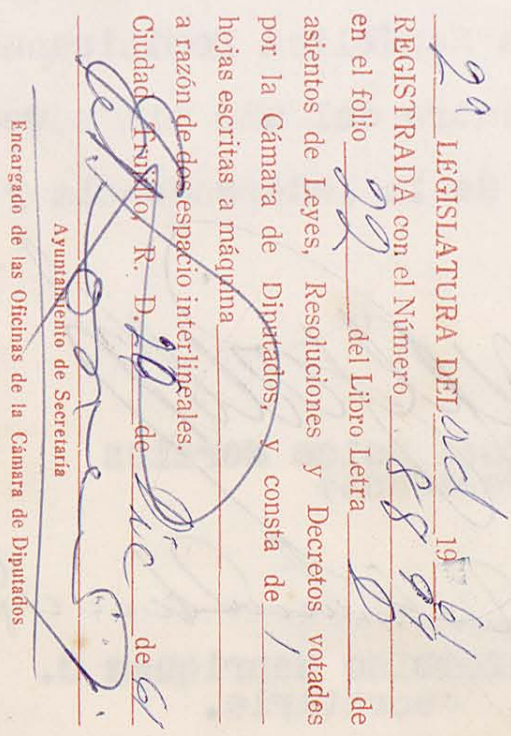 2ª LEGISLATURA DEL Ord 1961
REGISTRADA con el Número 88 09
en el folio 22 del Libro Letra D de
asientos de Leyes, Resoluciones y Decretos votades
por la Cámara de Diputados, y consta de 1
hojas escritas a máquina
a razón de dos espacio interlineales
Ciudad Trujillo, R. D. 20 de Dic de 61
Ayuntamiento de Secretaria
Encargado de las Oficinas de la Cámara de Diputados